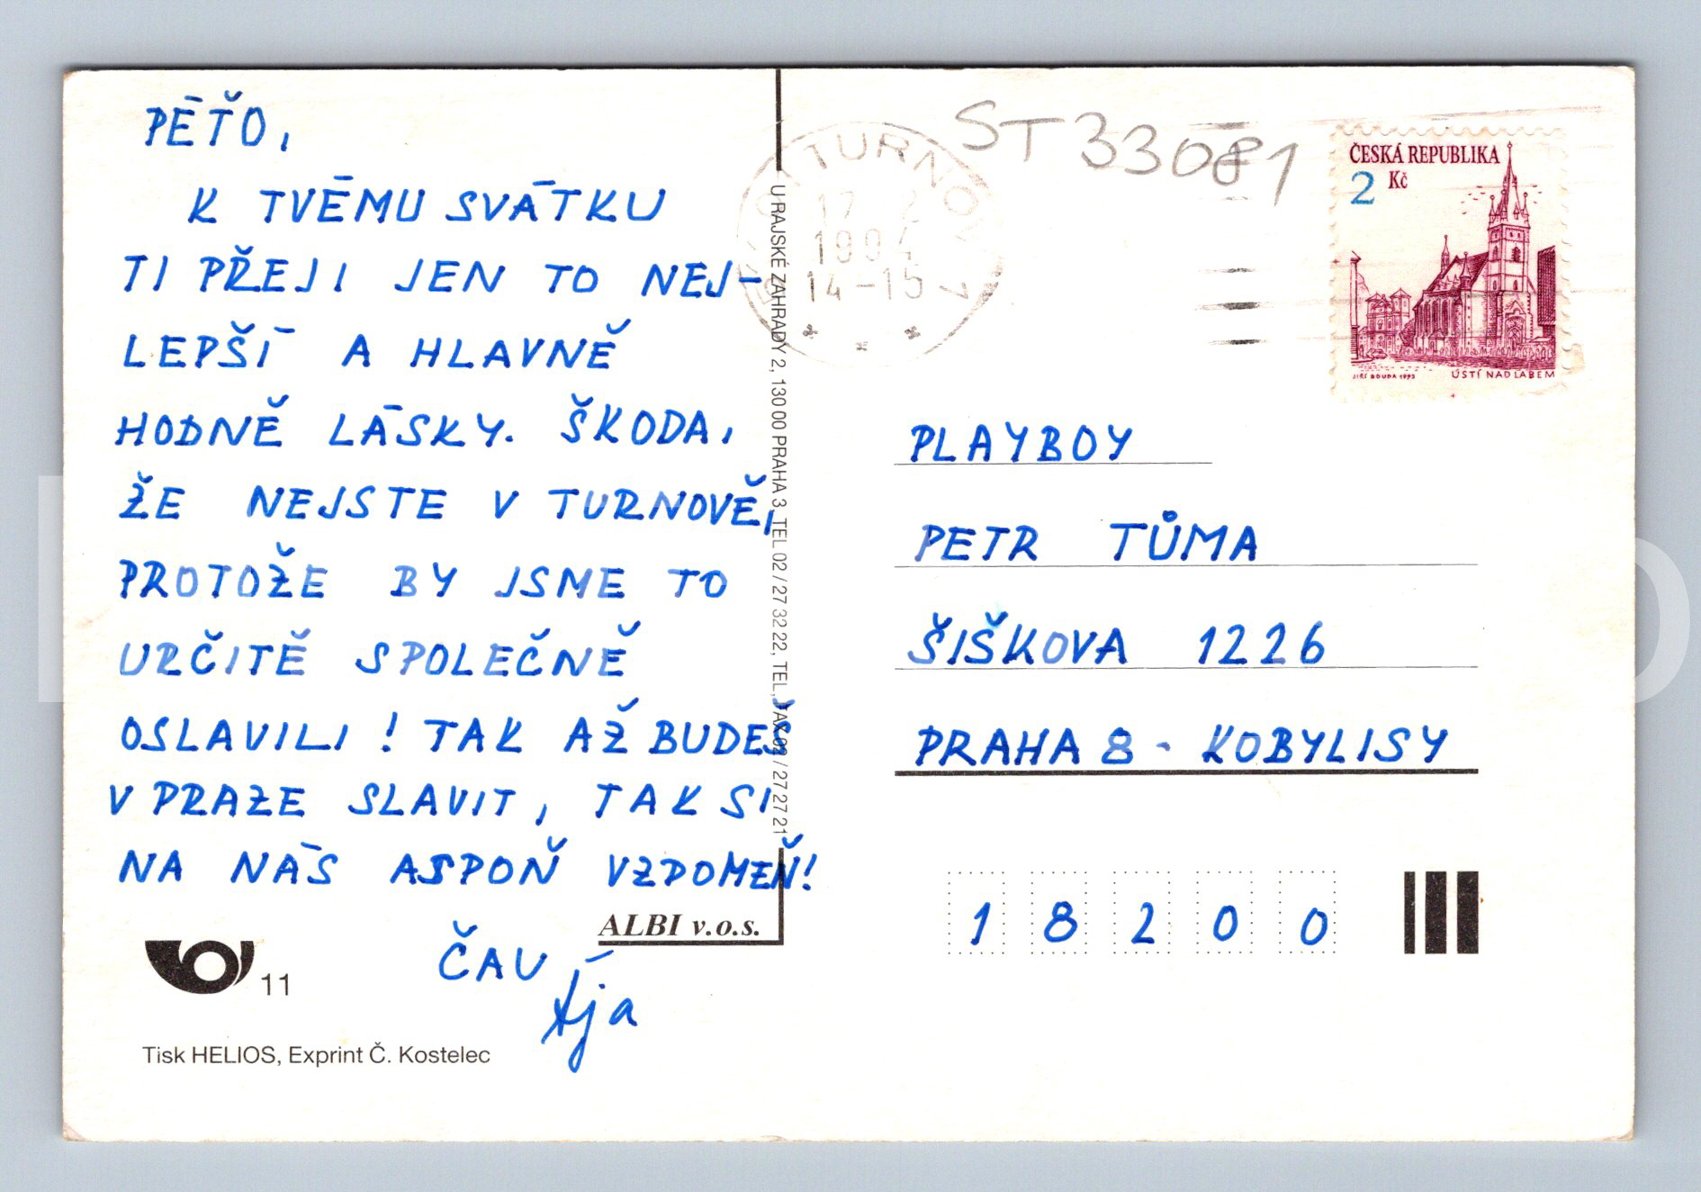 PÉŤO,
K TVÉMU SVÁTKU
TI PŘEJI JEN TO NEJ-
LEPŠÍ A HLAVNĚ
HODNĚ LÁSKY. ŠKODA,
ŽE NEJSTE V TURNOVĚ,
PROTOŽE BY JSME TO
URČITĚ SPOLEČNĚ
OSLAVILI! TAK AŽ BUDEŠ
V PRAZE SLAVIT, TAK SI
NA NÁS ASPOŇ VZPOMEŇ!
ČAU
Ája
ALBI v.o.s.
11
Tisk HELIOS, Exprint Č. Kostelec
U RAJSKÉ ZAHRADY 2, 130 00 PRAHA 3, TEL 02 / 27 32 22, TEL, FAX 02 / 27 27 21
TURNOV 1
17
199
14-15
ST 33081
ČESKÁ REPUBLIKA
2 Kč
JIŘÍ BOUDA 1993 ÚSTÍ NAD LABEM
PLAYBOY
PETR TŮMA
ŠIŠKOVA 1226
PRAHA 8 - KOBYLISY
18200